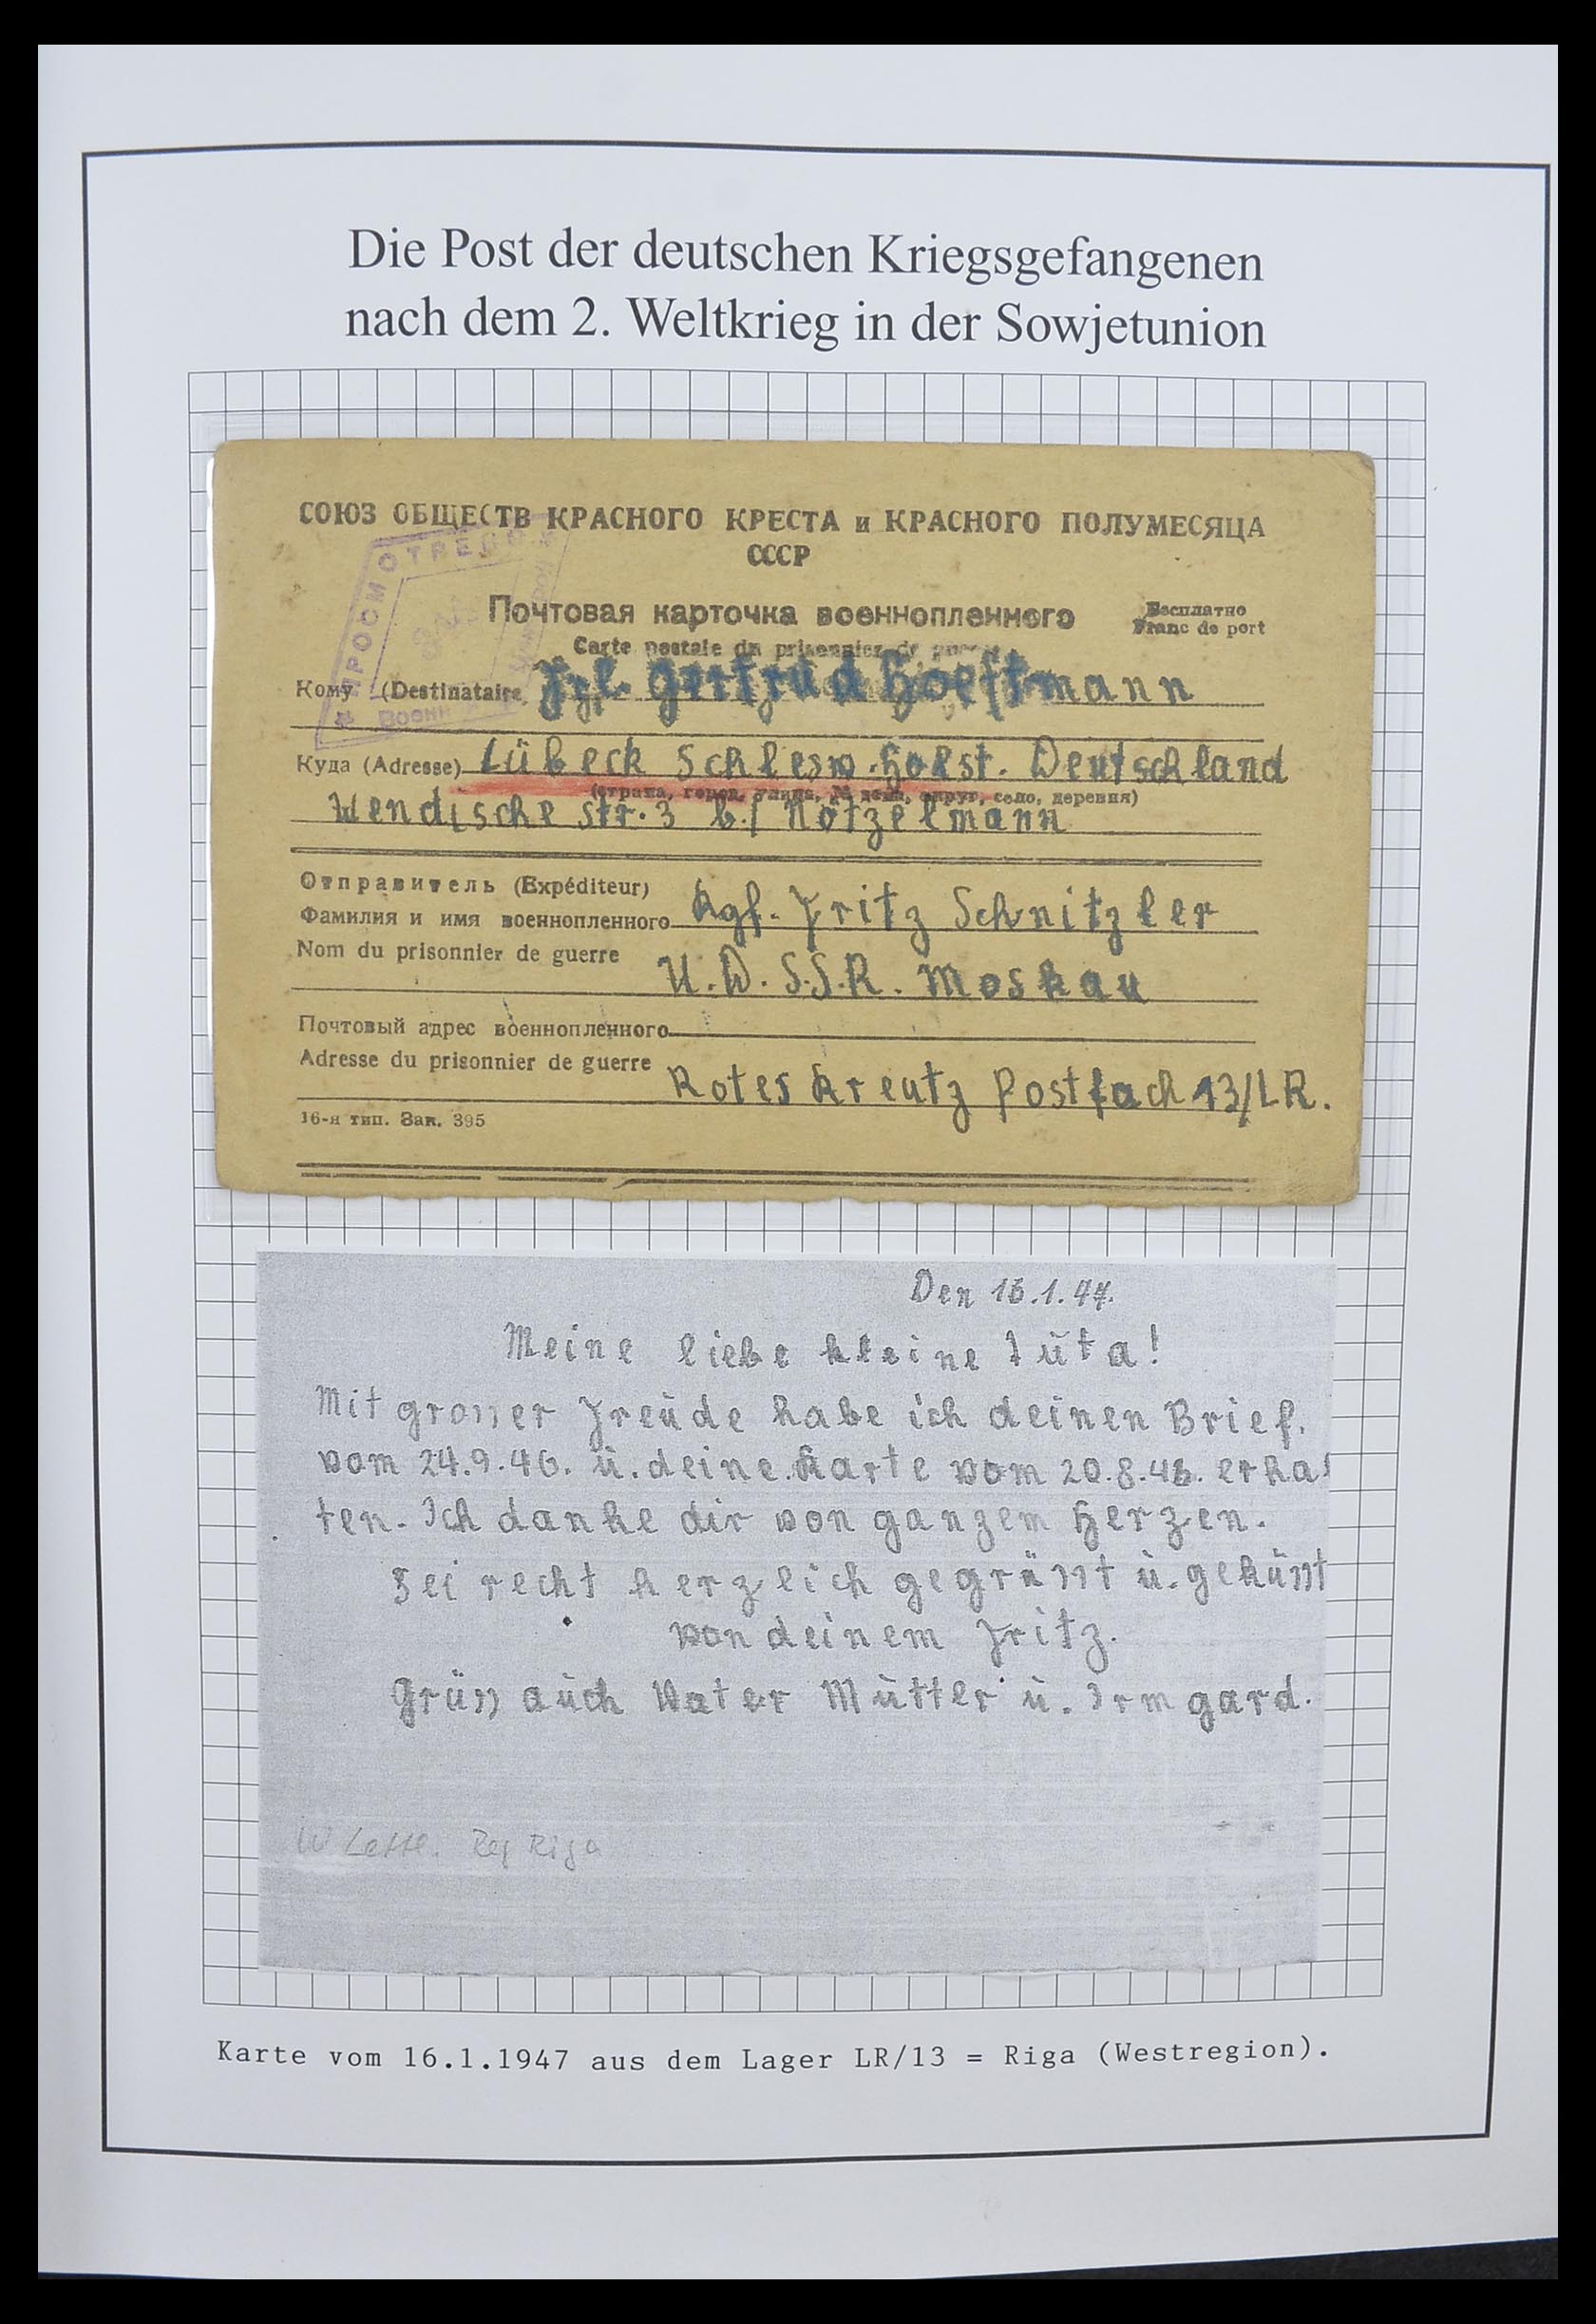 Die Post der deutschen Kriegsgefangenen
nach dem 2. Weltkrieg in der Sowjetunion
СОЮЗ ОБЩЕСТВ КРАСНОГО КРЕСТА и КРАСНОГО ПОЛУМЕСЯЦА
СССР
Почтовая карточка военнопленного
Бесплатно
Franc de port
Carte postale du prisonnier de guerre
ПРОСМОТРЕНО
Военн
Кому (Destinataire
Frl. Gertrud Hoeftmann
Куда (Adresse) Lübeck Schlesw.-Holst. Deutschland
(страна, город, улица, № дома, округ, село, деревня)
Wendische Str. 3 b./ Nötzelmann
Отправитель (Expéditeur)
Фамилия и имя военнопленного Kgf. Fritz Schnitzler
Nom du prisonnier de guerre
U.D.S.S.R. Moskau
Почтовый адрес военнопленного
Adresse du prisonnier de guerre Rotes Kreutz Postfach 13/LR.
16-я тип. Зак. 395
Den 16.1.47.
Meine liebe kleine Juta!
Mit grosser Freude habe ich deinen Brief.
vom 24.9.46. u. deine Karte vom 20.8.46. erhal
ten. Ich danke dir von ganzem Herzen.
Sei recht herzlich gegrüsst u. geküsst
von deinem Fritz.
Grüss auch Vater Mutter u. Irmgard.
W Lettl. Reg Riga
Karte vom 16.1.1947 aus dem Lager LR/13 = Riga (Westregion).